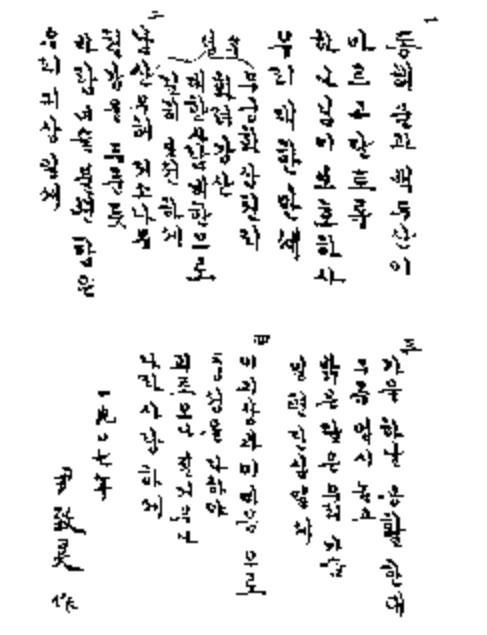 一
동해물과 백두산이
마르고 달토록
하나님이 보호하사
우리 대한 만세
후렴
무궁화 삼천리
화려강산
대한사람 대한으로
길히 보전하세
二
남산우헤 저 소나무
철갑을 두른 듯
바람 이슬 불변함은
우리 긔상일세
三
가을 하날 공활한대
구름 업시 놉고
밝은 달은 우리 가슴
일편단심일세
四
이 긔상과 이 마음으로
충성을 다하야
괴로오나 질거우나
나라 사랑하세
一九〇七年
尹致昊 作